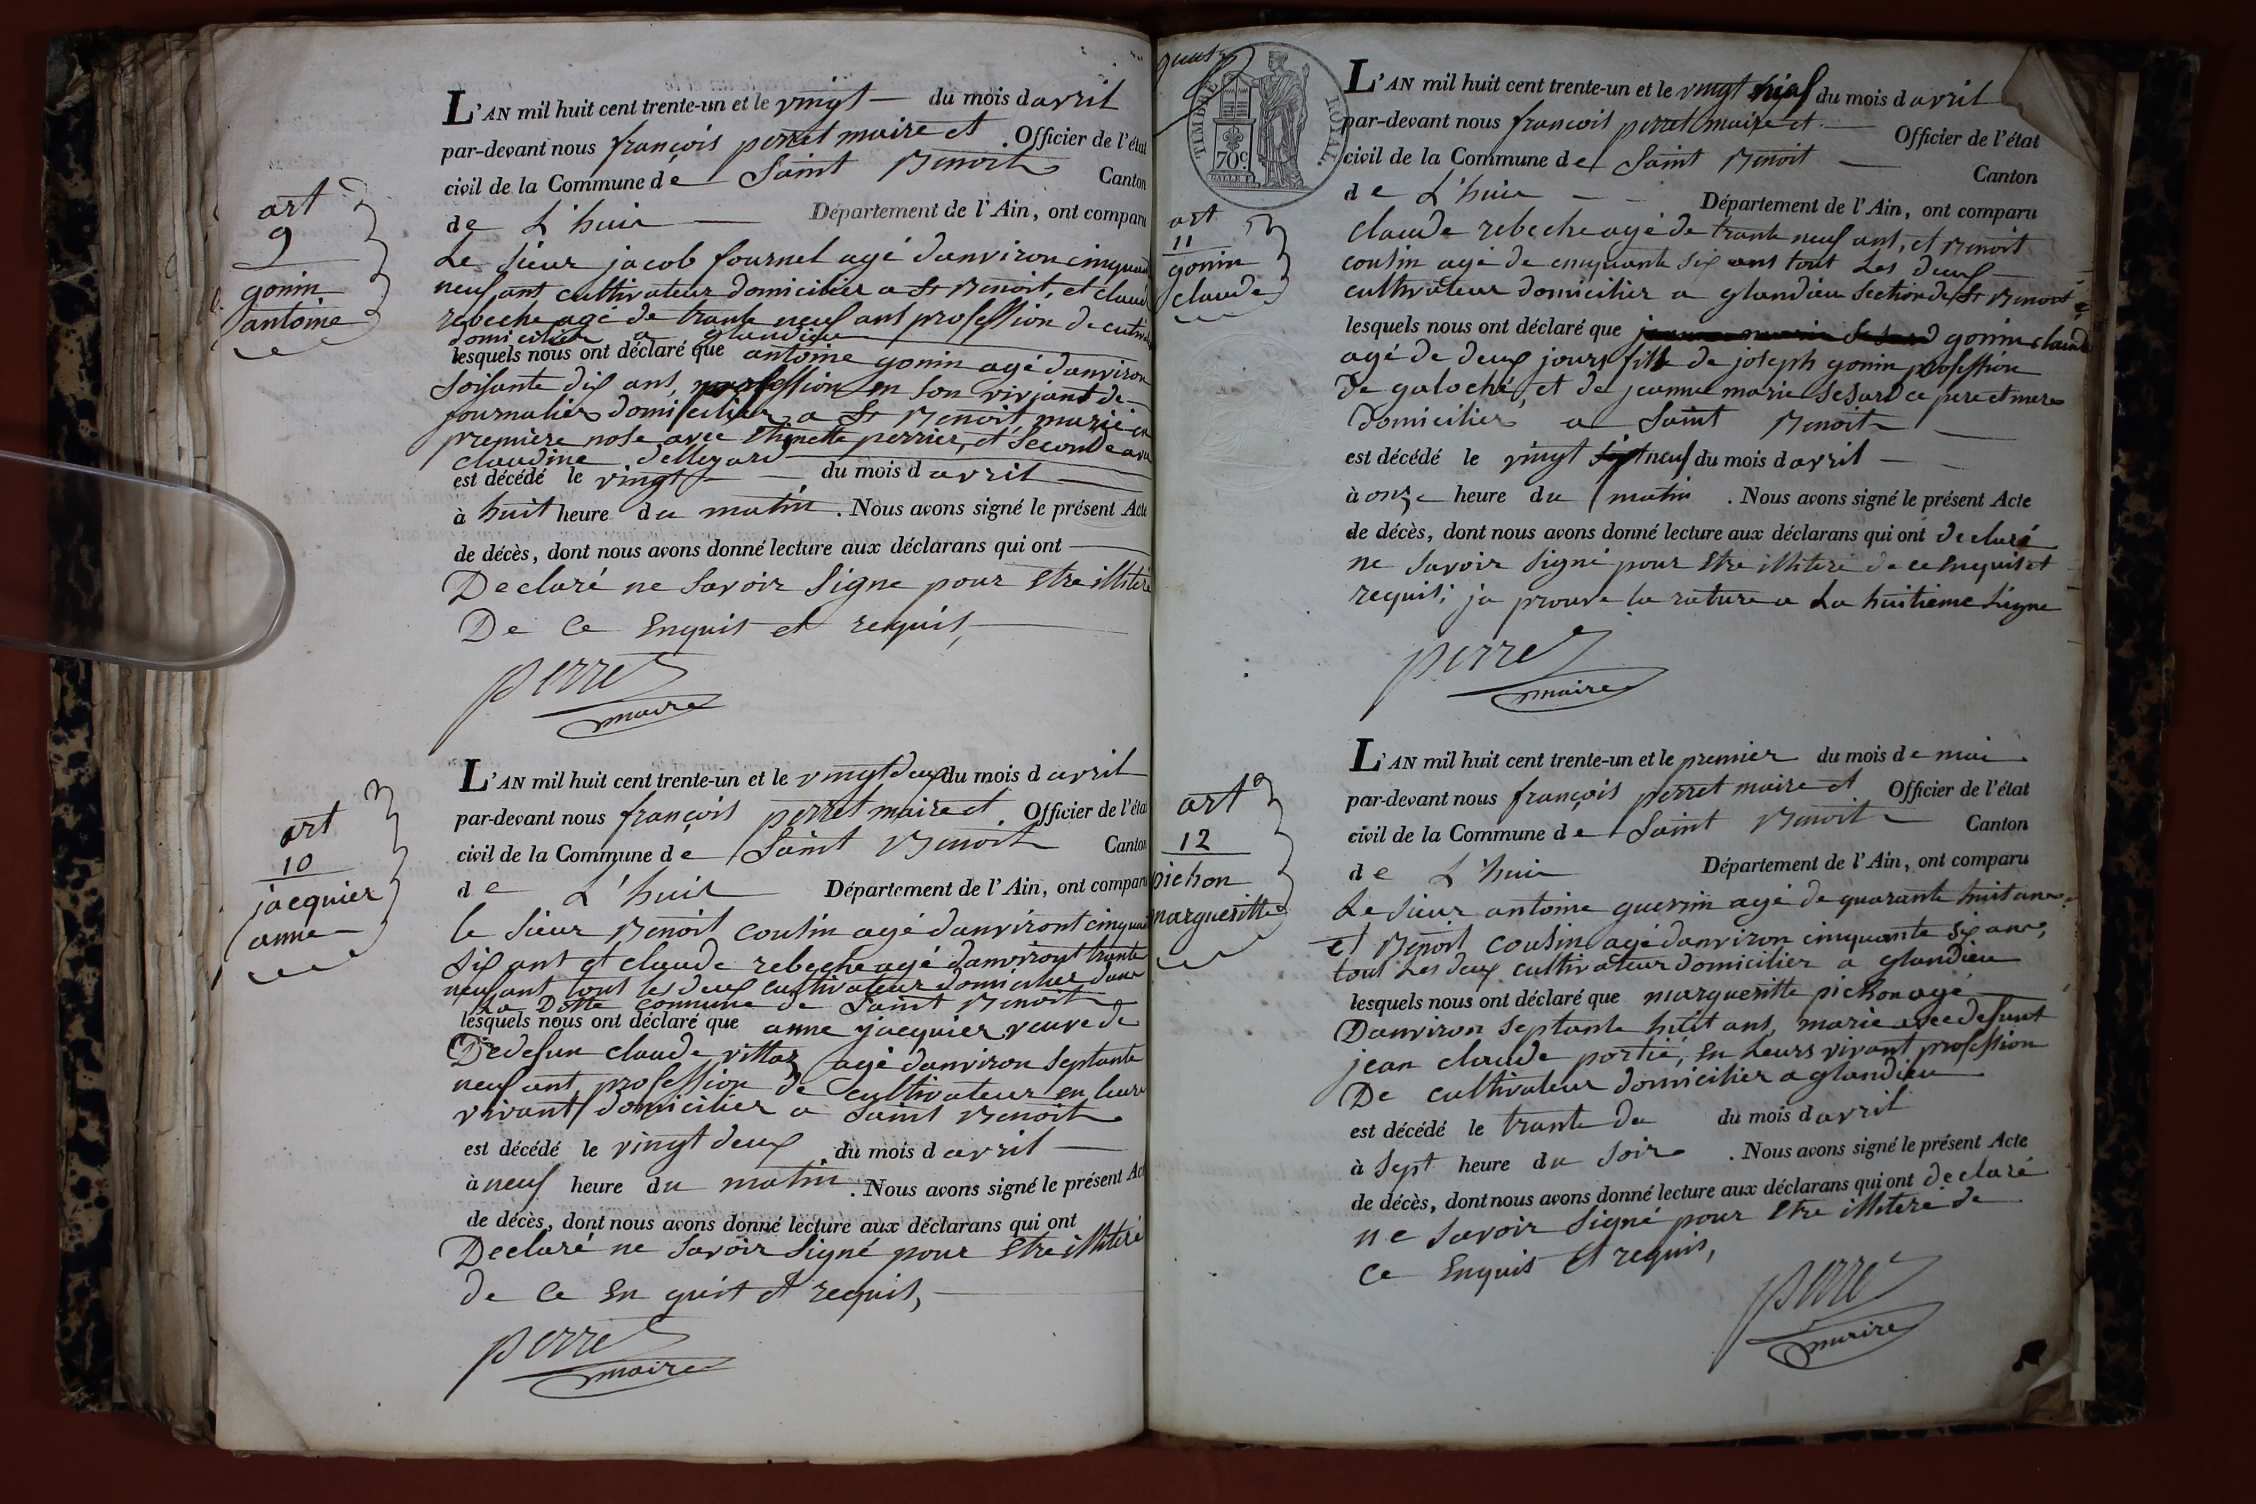 art
9
gonin
antoine
L'AN mil huit cent trente-un et le vingt du mois d avril
par-devant nous françois perret maire et Officier de l'état
civil de la Commune de Saint Benoit Canton
de L'huis Département de l'Ain, ont comparu
Le sieur jacob fournel agé danviron cinquante
neuf ant cultivateur domicilier a St Benoit, et claude
rebeche agé de trante neuf ans profession de
domicilier a glandieu
lesquels nous ont déclaré que antoine gonin agé danviron
soisante dix ans, profession en son vivant de
journalier domicilier a St Benoit marié en
première nose avec Etienette perrier, et seconde avec
claudine
est décédé le vingt du mois d avril
à huit heure du matin. Nous avons signé le présent Acte
de décès, dont nous avons donné lecture aux déclarans qui ont
Declaré ne savoir signe pour Etre illiteré
De Ce Enquis et requis,
perret
maire
art
10
jacquier
anne
L'AN mil huit cent trente-un et le vingt deux du mois d avril
par-devant nous françois perret maire et. Officier de l'état
civil de la Commune de Saint Benoit Canton
de L'huis Département de l'Ain, ont comparu
le sieur Benoit cousin agé danviront cinquante
six ant et claude rebeche agé danviront trante
neuf ant tout les deux cultivateur domicilier dans
La Ditte commune de Saint Benoit
lesquels nous ont déclaré que anne jacquier veuve de
Dedefun claude vittoz agé danviron septante
neuf ant profession de cultivateur en leure
vivant domicilier a Saint Benoit
est décédé le vingt deux du mois d avril
à neuf heure du matin. Nous avons signé le présent Acte
de décès, dont nous avons donné lecture aux déclarans qui ont
Declaré ne savoir signé pour Etre illiteré
de Ce En quit et requis,
perret
maire
TIMBRE ROYAL
70c
art
11
gonin
claude
L'AN mil huit cent trente-un et le vingt neuf du mois d avril
par-devant nous francois perret maire et Officier de l'état
civil de la Commune de Saint Benoit Canton
de L'huis Département de l'Ain, ont comparu
claude rebeche agé de trante neuf ant, et Benoit
cousin agé de cinquante six ans tout Les deux
cultivateur domicilier a glandieu section de St Benoit
lesquels nous ont déclaré que gonin claude
agé de deux jours fils de joseph gonin profession
De galoché, et de jeanne marie Sesard ce pere et mere
Domicilier a Saint Benoit
est décédé le vingt neuf du mois d avril
à onze heure du matin. Nous avons signé le présent Acte
de décès, dont nous avons donné lecture aux déclarans qui ont declaré
ne savoir signé pour Etre illiteré de ce Enquis et
requis; ja prouve la rature a La huitieme Ligne
perret
maire
art
12
pichon
margueritte
L'AN mil huit cent trente-un et le premier du mois de mai
par-devant nous françois perret maire et Officier de l'état
civil de la Commune de Saint Benoit Canton
de L'huis Département de l'Ain, ont comparu
Le sieur antoine guerin agé de quarante huit ans
et Benoit cousin agé danviron cinquante six ans,
tout Les deux cultivateur domicilier a glandieu
lesquels nous ont déclaré que margueritte pichon agé
Danviron septante huit ans, marie avec defunt
jean claude portié, en Leurs vivant profession
De cultivateur domicilier a glandieu
est décédé le trante du du mois d avril
à sept heure du soire. Nous avons signé le présent Acte
de décès, dont nous avons donné lecture aux déclarans qui ont declaré
ne savoir signé pour Etre illiteré de
Ce Enquis Et requis,
perret
maire